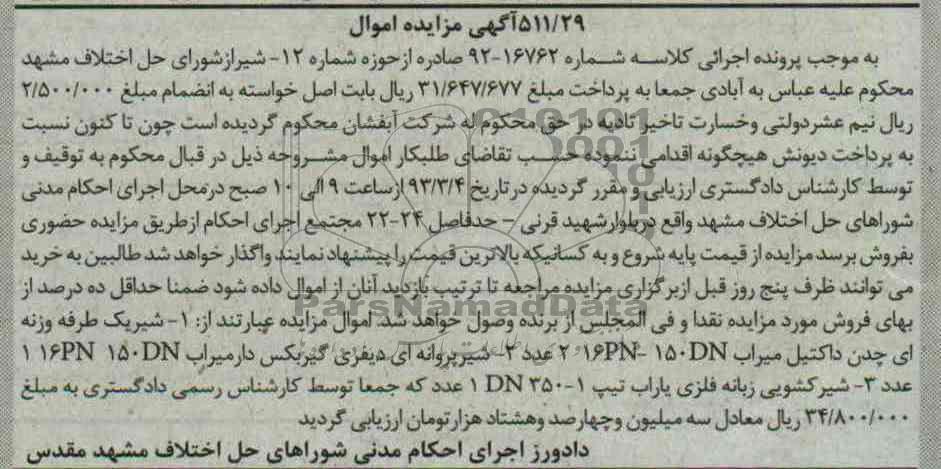 ۵۱۱/۲۹آگهی مزایده اموال
به موجب پرونده اجرائی کلاسه شماره ۱۶۷۶۲-۹۲ صادره ازحوزه شماره ۱۲- شیرازشورای حل اختلاف مشهد
محکوم علیه عباس به آبادی جمعا به پرداخت مبلغ ۳۱/۶۴۷/۶۷۷ ریال بابت اصل خواسته به انضمام مبلغ ۲/۵۰۰/۰۰۰
ریال نیم عشردولتی وخسارت تاخیر تادیه در حق محکوم له شرکت آبفشان محکوم گردیده است چون تا کنون نسبت
به پرداخت دیونش هیچگونه اقدامی ننموده حسب تقاضای طلبکار اموال مشروحه ذیل در قبال محکوم به توقیف و
توسط کارشناس دادگستری ارزیابی و مقرر گردیده درتاریخ ۹۳/۳/۴ ازساعت ۹ الی ۱۰ صبح درمحل اجرای احکام مدنی
شوراهای حل اختلاف مشهد واقع دربلوارشهید قرنی – حدفاصل ۲۴-۲۲ مجتمع اجرای احکام ازطریق مزایده حضوری
بفروش برسد مزایده از قیمت پایه شروع و به کسانیکه بالاترین قیمت را پیشنهاد نمایند واگذار خواهد شد طالبین به خرید
می توانند ظرف پنج روز قبل ازبرگزاری مزایده مراجعه تا ترتیب بازدید آنان از اموال داده شود ضمنا حداقل ده درصد از
بهای فروش مورد مزایده نقدا و فی المجلس از برنده وصول خواهد شد. اموال مزایده عبارتند از: ۱- شیریک طرفه وزنه
ای چدن داکتیل میراب ۱۶PN- ۱۵۰DN ۲ عدد ۲- شیرپروانه ای دیفزی گیربکس دارمیراب ۱۶PN ۱۵۰DN ۱
عدد ۳- شیرکشویی زبانه فلزی یاراب تیپ ۱-۳۵۰ DN ۱ عدد که جمعا توسط کارشناس رسمی دادگستری به مبلغ
۳۴/۸۰۰/۰۰۰ ریال معادل سه میلیون وچهارصد وهشتاد هزارتومان ارزیابی گردید
دادورز اجرای احکام مدنی شوراهای حل اختلاف مشهد مقدس
ParsNamadData